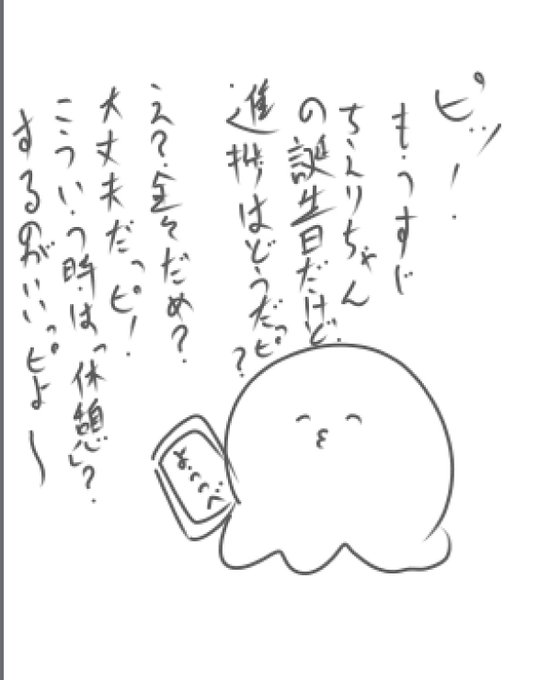 ピッ!
もうすぐ
ちえりちゃん
の誕生日だけど、
進捗はどうだっピ?
え?全々だめ?
大丈夫だっピ!
こういう時は、休憩?
するのがいいっピよ〜
まっつべ